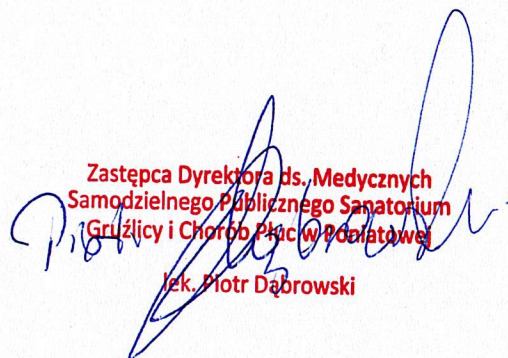 Zastępca Dyrektora ds. Medycznych
Samodzielnego Publicznego Sanatorium
Gruźlicy i Chorób Płuc w Poniatowej
lek. Piotr Dąbrowski
Piotr Dąbrowski